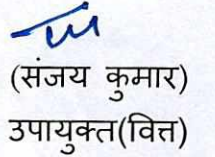 (संजय कुमार)
उपायुक्त(वित्त)